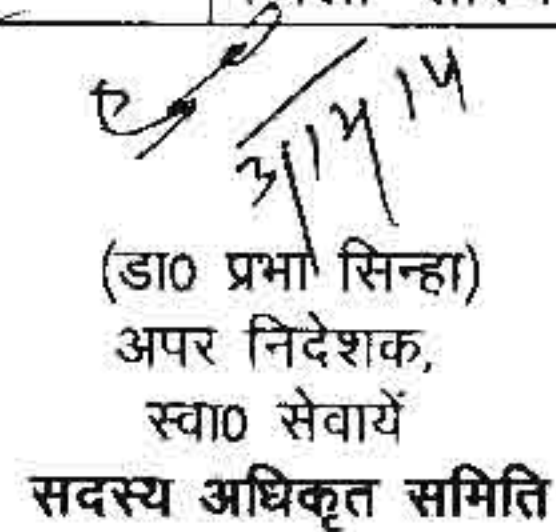 (डा0 प्रभा सिन्हा)
अपर निदेशक,
स्वा0 सेवायें
सदस्य अधिकृत समिति